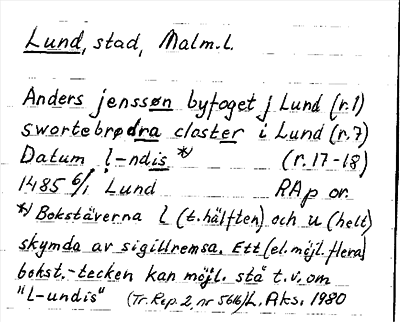 Lund, stad, Malm.l.
Anders jenssøn byfoget j Lund (r.1)
swortebrødra closter i Lund (r.7)
Datum l-ndis *) (r.17-18)
1485 6/1 Lund RAp or.
*) Bokstäverna l (t.hälften) och u (helt)
skymda av sigillremsa. Ett (el. möjl. flera)
bokst.-tecken kan möjl. stå t.v. om
"l-undis" (Tr. Rep. 2, nr 5616) L. Aks. 1980